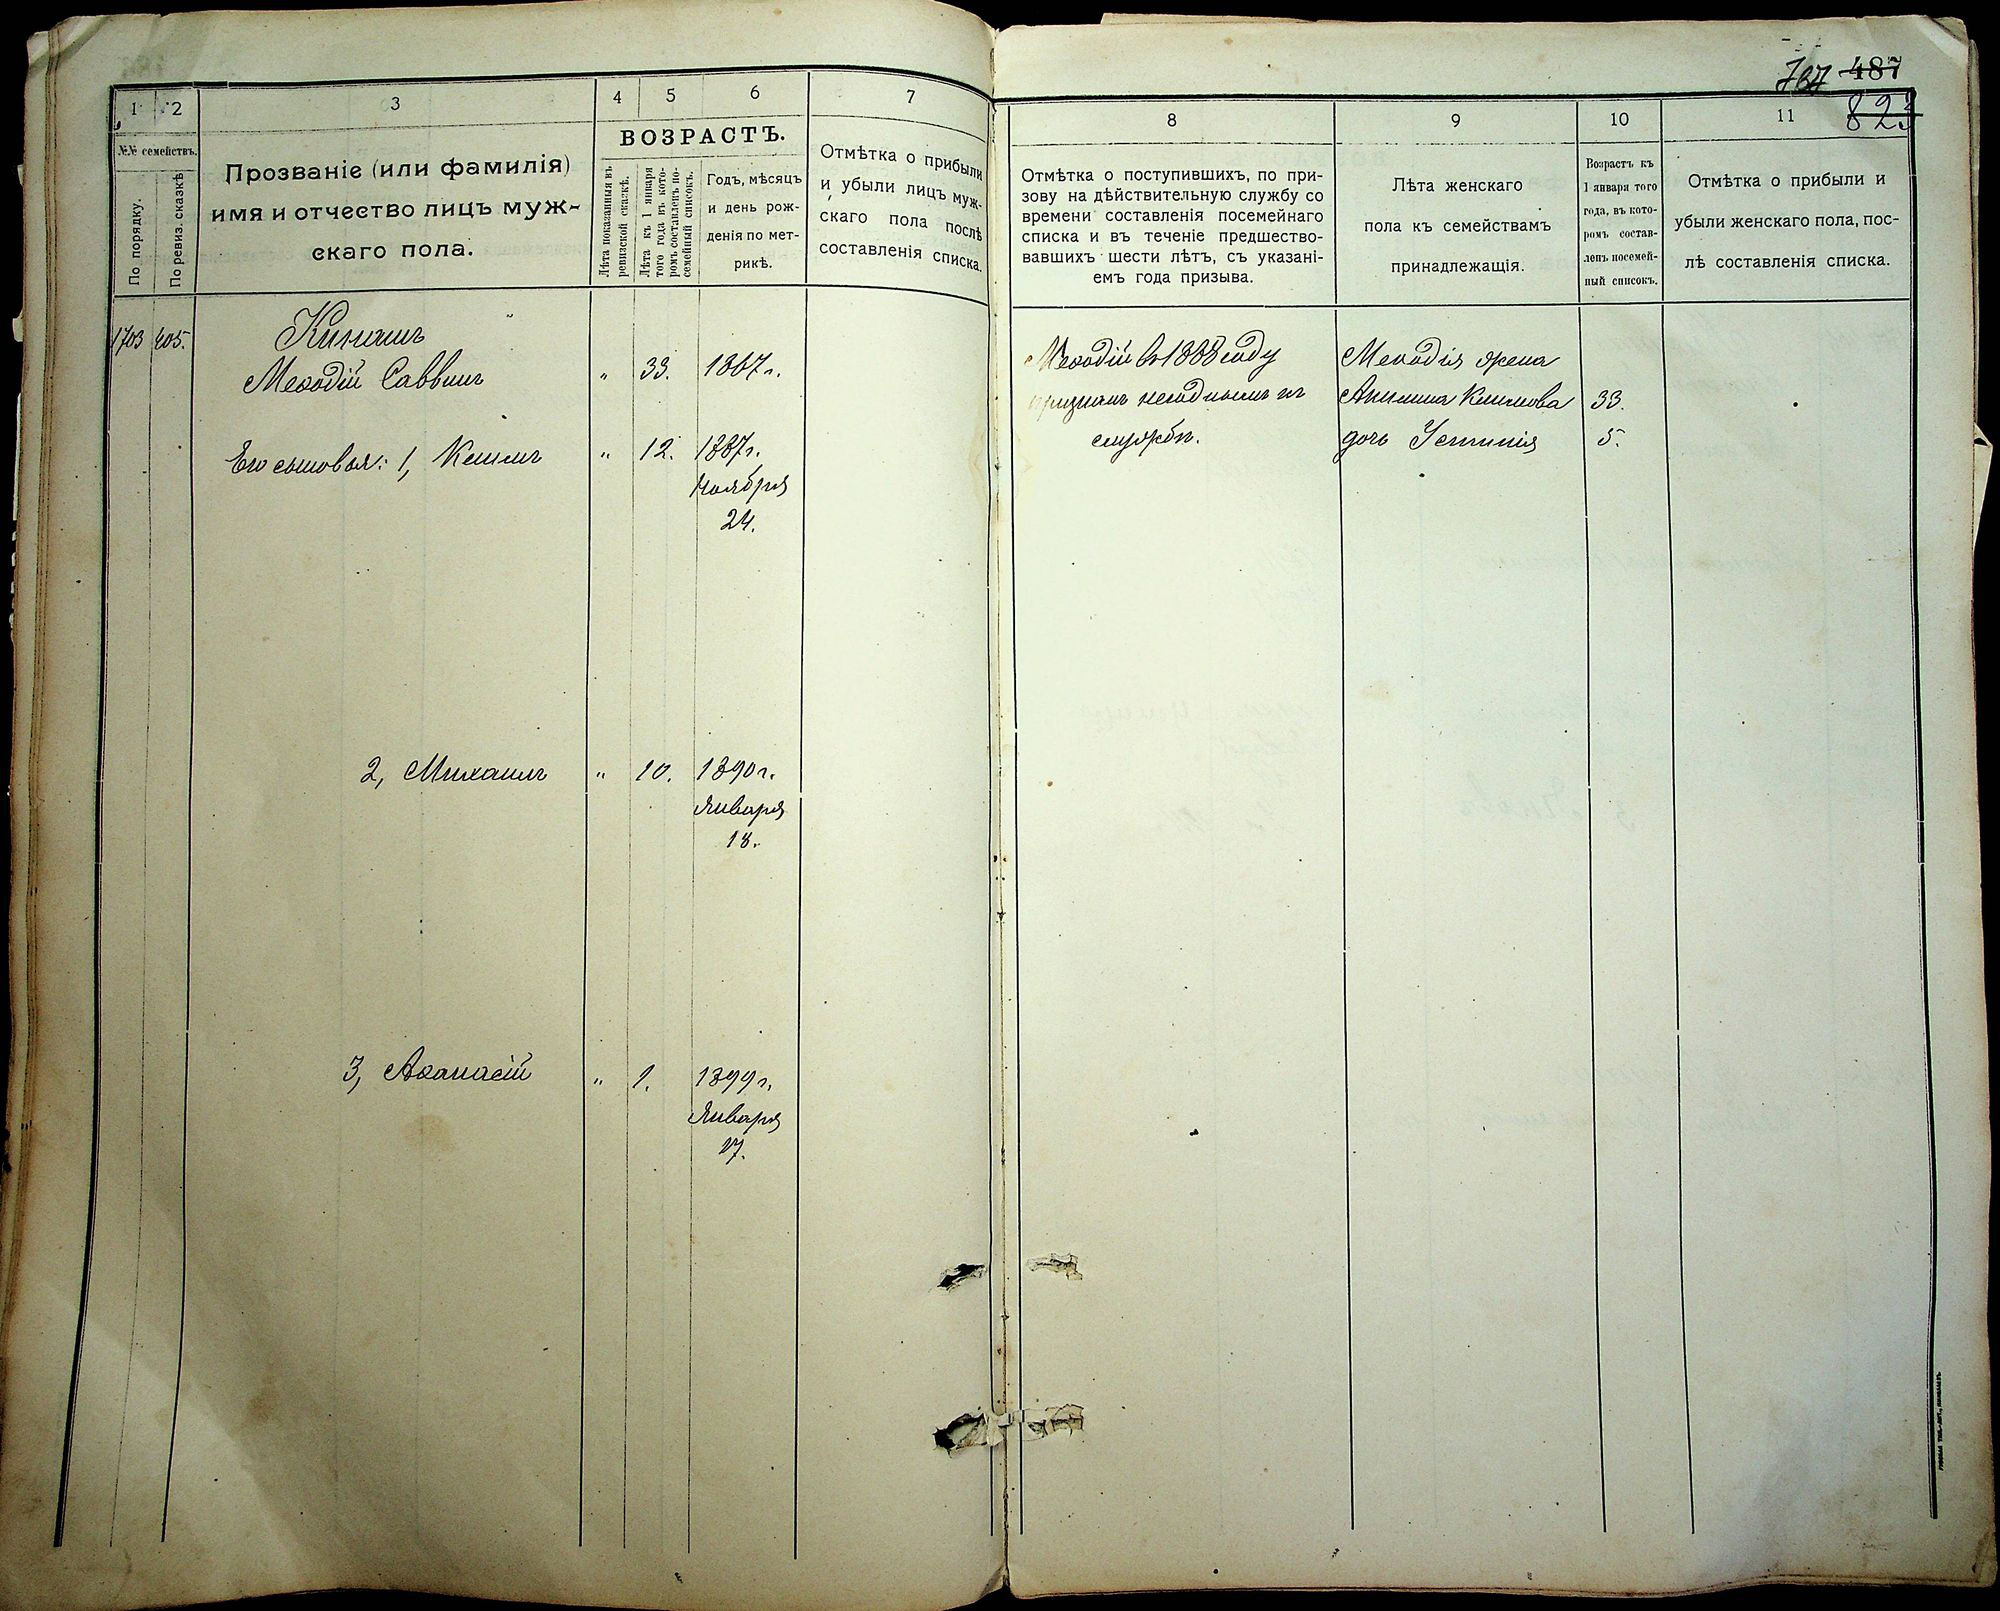 1 2 3 4 5 6 7
№№ семействъ.
По порядку.
По ревиз. сказкѣ
Прозваніе (или фамилія)
имя и отчество лицъ муж-
скаго пола.
ВОЗРАСТЪ.
Лѣта показанныя въ
ревизской сказкѣ.
Лѣта къ 1 января
того года въ кото-
ромъ составленъ по-
семейный списокъ.
Годъ, мѣсяцъ
и день рож-
денія по мет-
рикѣ.
Отмѣтка о прибыли
и убыли лицъ муж-
скаго пола послѣ
составленія списка.
1703 405. Кинашъ
Меѳодій Саввинъ " 33. 1867 г.
Его сыновья: 1, Климъ " 12. 1887 г.
Ноября
24.
2, Михаилъ " 10. 1890 г.
Января
18.
3, Аѳанасій " 1. 1899 г.
Января
17.
487
823
8 9 10 11
Отмѣтка о поступившихъ, по при-
зову на дѣйствительную службу со
времени составленія посемейнаго
списка и въ теченіе предшество-
вавшихъ шести лѣтъ, съ указані-
емъ года призыва.
Лѣта женскаго
пола къ семействамъ
принадлежащія.
Возрастъ къ
1 января того
года, въ кото-
ромъ состав-
ленъ посемей-
ный списокъ.
Отмѣтка о прибыли и
убыли женскаго пола, пос-
лѣ составленія списка.
Меѳодій въ 1888 году
признанъ негоднымъ къ
службѣ.
Меѳодія жена
Акилина Климова 33.
дочь Устинія 5.